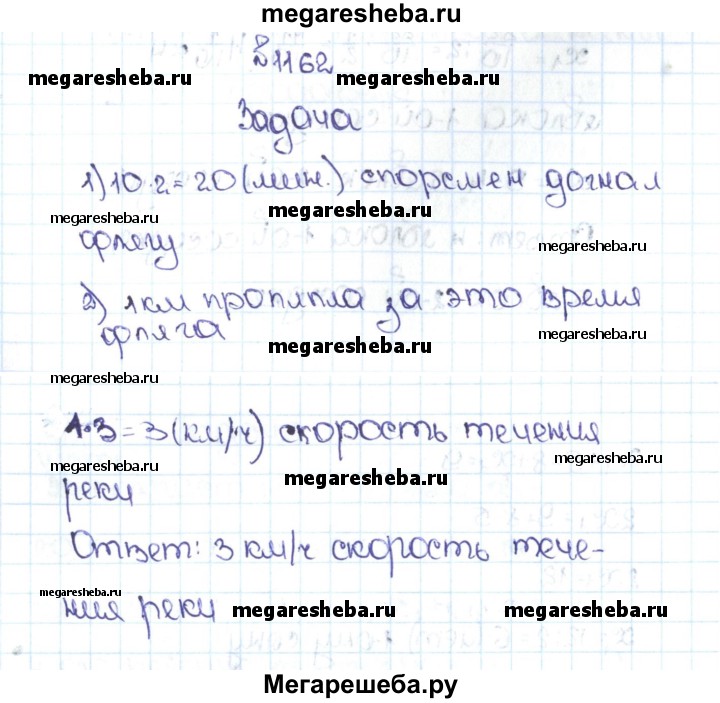 megaresheba.ru
№1162
megaresheba.ru megaresheba.ru
Задача
1) 10·2=20(мин.) спорсмен догнал
megaresheba.ru megaresheba.ru megaresheba.ru
флягу
2) 1км проплыла за это время
megaresheba.ru
фляга
megaresheba.ru megaresheba.ru
megaresheba.ru
1·3=3(км/ч) скорость течения
megaresheba.ru
реки
megaresheba.ru
Ответ: 3 км/ч скорость тече-
megaresheba.ru
ния реки megaresheba.ru megaresheba.ru
Мегарешеба.ру